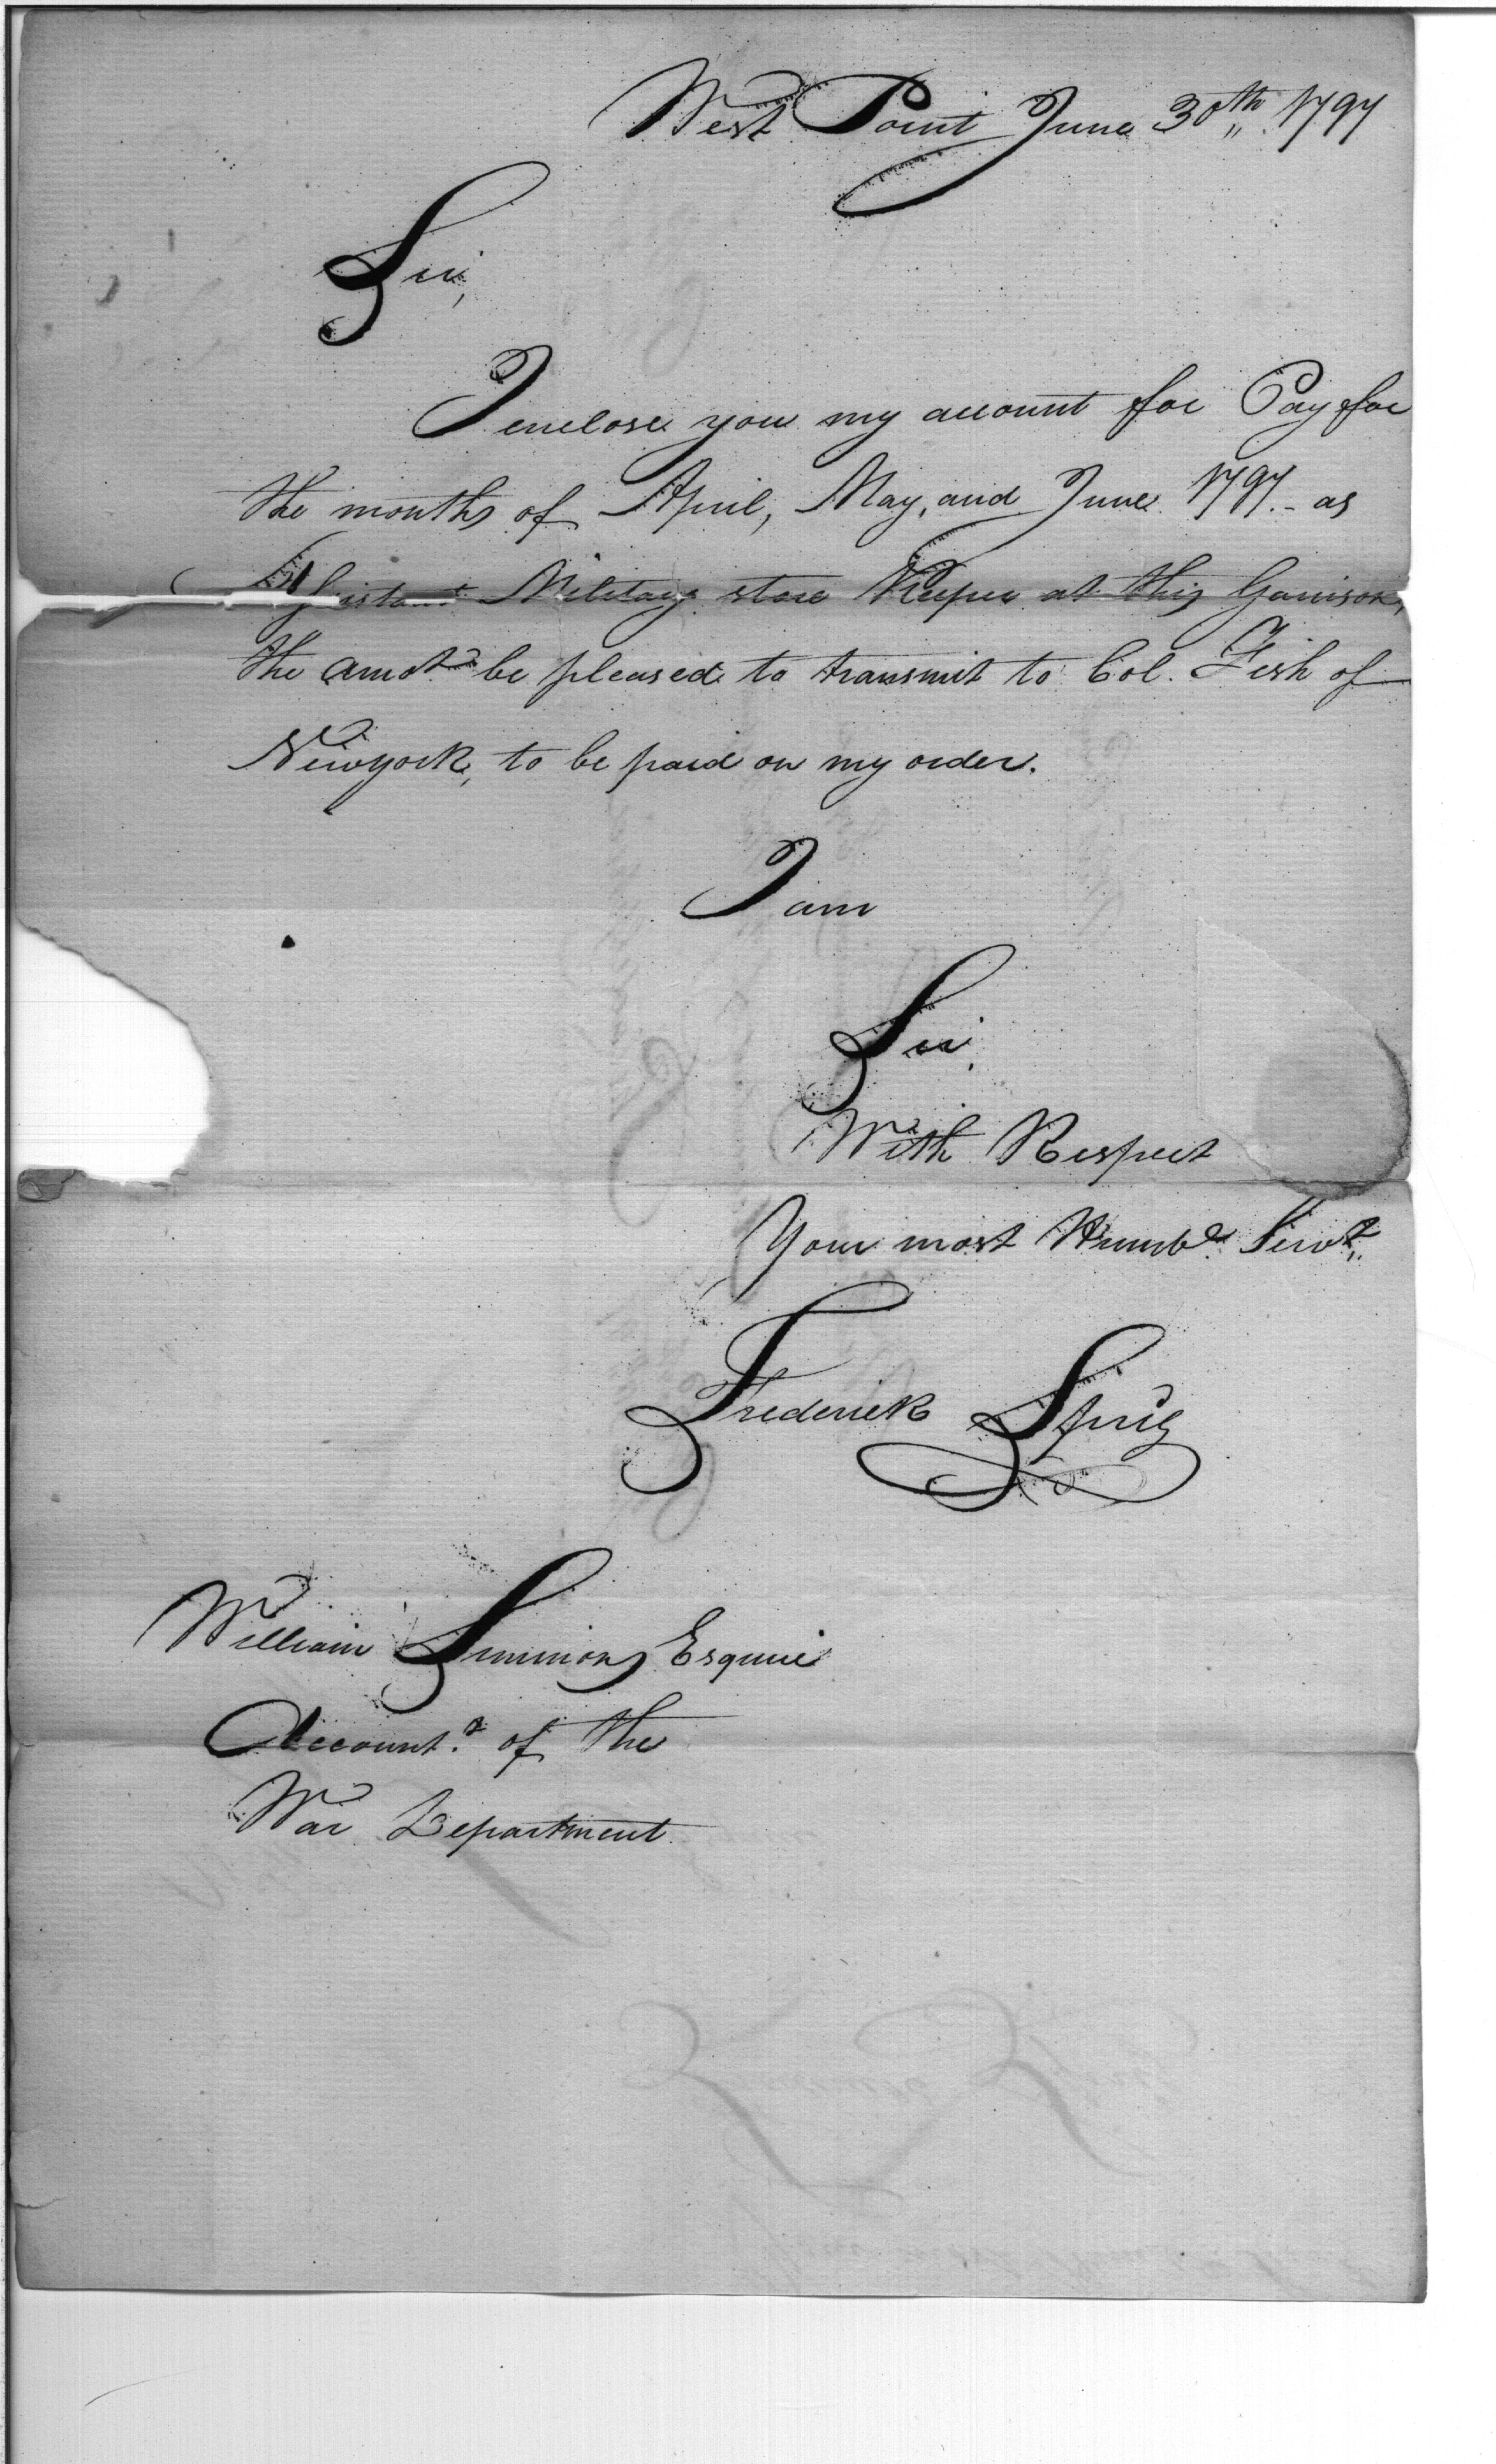 West Point June 30th 1797
Sir,
I enclose you my account for Pay for
the months of April, May, and June 1797.- as
Assistant Military store Keeper at this Garrison,
the amot. be pleased to transmit to Col. Fish of
Newyork, to be paid on my order.
I am
Sir,
With Respect
Your most Humbe. Servt.
Frederick Sprig
William Simmons Esquire
Accountt. of the
War Department